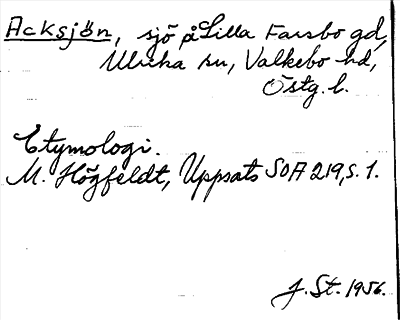 Acksjön, sjö på Lilla Farsbo gd,
Ulrika sn, Valkebo hd,
Östg. l.
Etymologi.
M. Högfeldt, Uppsats SOA 219, s. 1.
J. St. 1956.